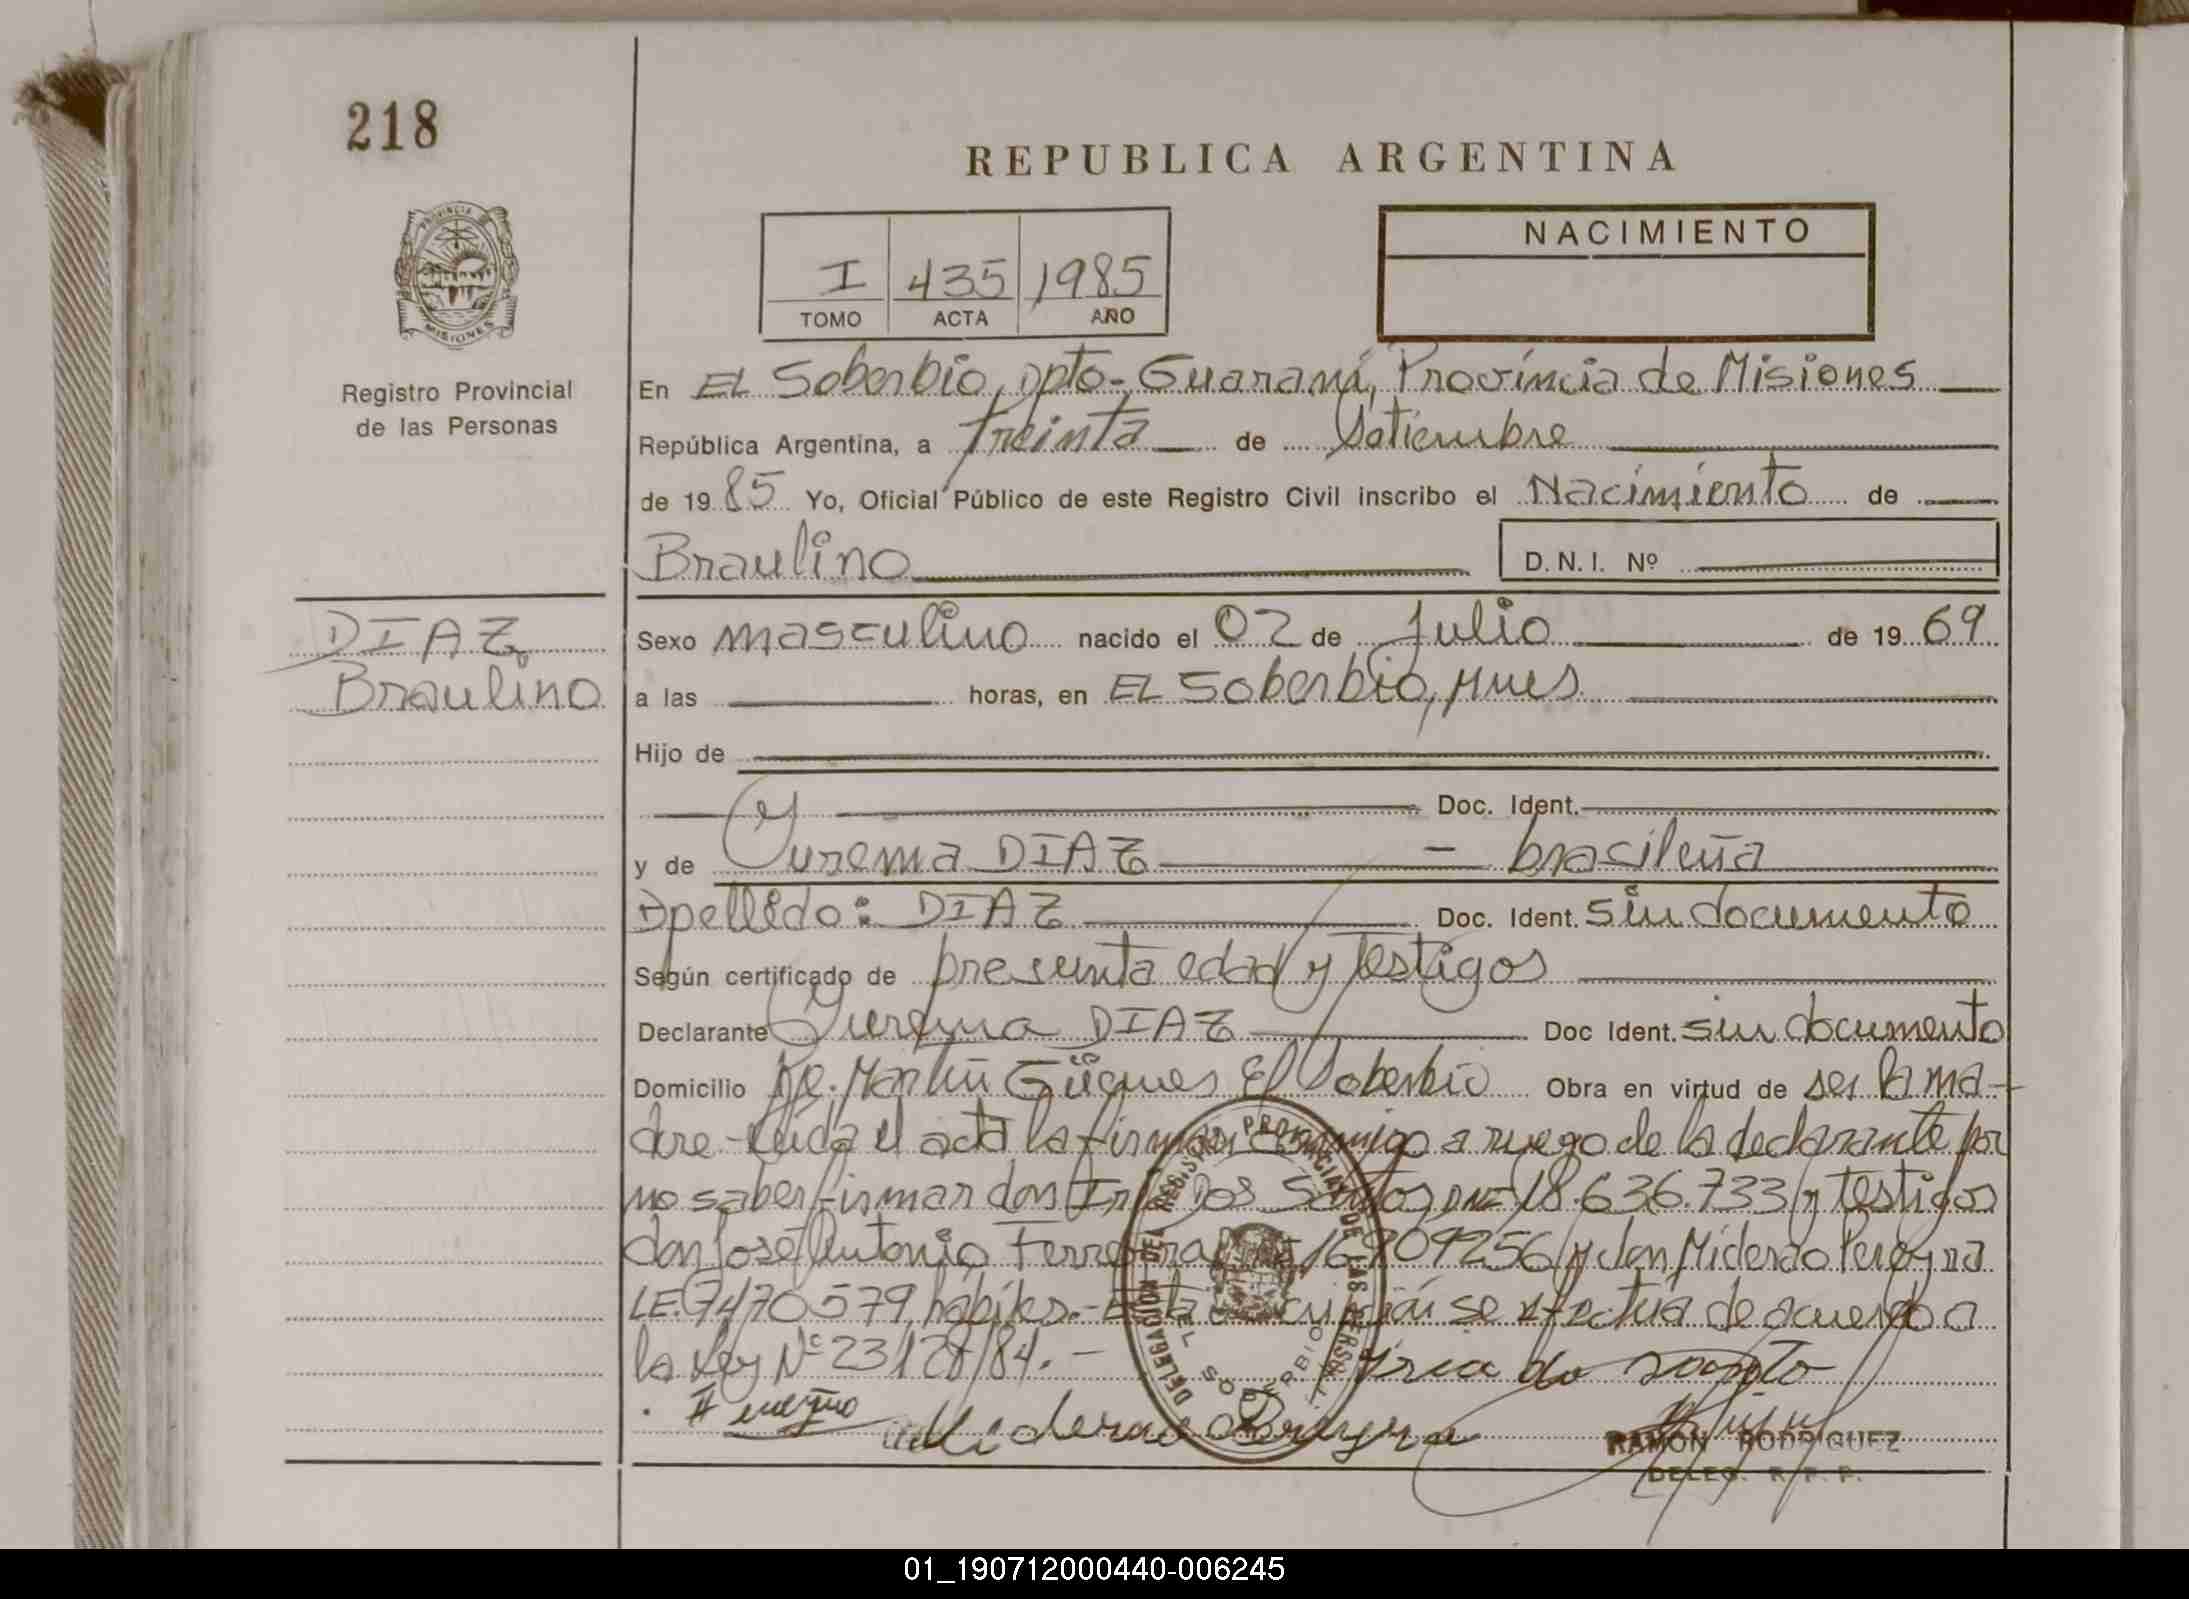 218
REPUBLICA ARGENTINA
NACIMIENTO
I 435 1985
TOMO ACTA AÑO
PROVINCIA DE
MISIONES
Registro Provincial
de las Personas
En EL Soberbio, Dpto- Guaraní, Provincia de Misiones
República Argentina, a treinta de Setiembre
de 1985 Yo, Oficial Público de este Registro Civil inscribo el Nacimiento de
Braulino D.N.I. Nº
DIAZ
Braulino
Sexo masculino nacido el 02 de Julio de 1969
a las horas, en EL Soberbio, Mnes
Hijo de
Doc. Ident.
y de Yurema DIAZ - brasileña
Apellido: DIAZ Doc. Ident. sin documento
Según certificado de presunta edad y testigos
Declarante Yurema DIAZ Doc Ident. sin documento
Domicilio Martín Güemes El Soberbio Obra en virtud de ser la ma-
dre - leída el acta la firman conmigo a ruego de la declarante por
no saber firmar don Dos Santos DNI 18.636.733 y testigos
don José Antonio Ferreira y don Miderao Pereyra
LE. 7470579, hábiles.- Esta inscripción se efectúa de acuerdo a
la Ley Nº 23128/84. -
DELEGACION DEL REGISTRO PROVINCIAL DE LAS PERSONAS
EL SOBERBIO
RAMON RODRIGUEZ
DELEG. R. P. P.
01_190712000440-006245